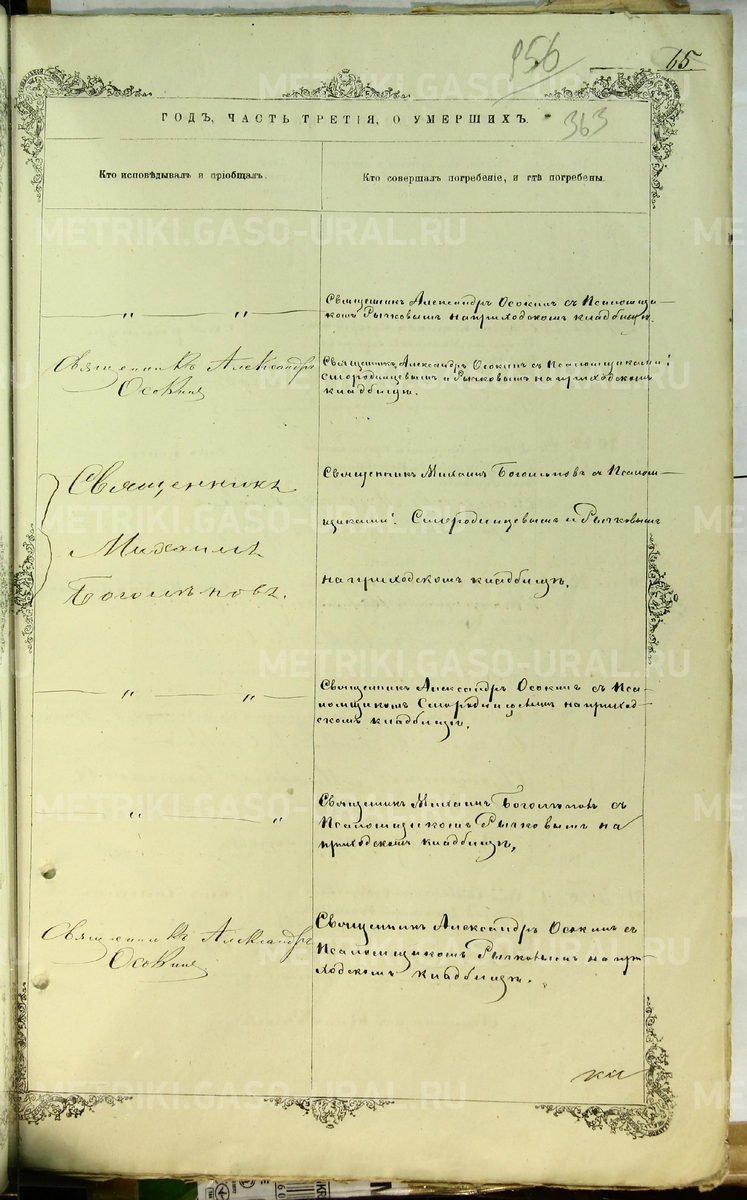 956
65.
363
ГОДЪ, ЧАСТЬ ТРЕТІЯ, О УМЕРШИХЪ.
Кто исповѣдывалъ и пріобщалъ.
Кто совершалъ погребеніе, и гдѣ погребены.
METRIKI.GASO-URAL.RU
— „ — „ —
Священникъ Александръ Осокинъ съ Псаломщи-
комъ Рычковымъ на приходскомъ кладбищѣ.
Священникъ Александръ
Осокинъ
Священникъ Александръ Осокинъ съ Псаломщиками:
Смородинцевымъ и Рычковымъ на приходскомъ
кладбищѣ.
Священникъ
Михаилъ
Боголѣповъ.
Священникъ Михаилъ Боголѣповъ съ Псалом-
щиками: Смородинцевымъ и Рычковымъ
на приходскомъ кладбищѣ.
— „ — „ —
Священникъ Александръ Осокинъ съ Пса-
ломщикомъ Смородинцевымъ на приход-
скомъ кладбищѣ.
— „ — „
Священникъ Михаилъ Боголѣповъ съ
Псаломщикомъ Рычковымъ на
приходскомъ кладбищѣ.
Священникъ Александръ
Осокинъ
Священникъ Александръ Осокинъ съ
Псаломщикомъ Рычковымъ на при-
ходскомъ кладбищѣ.